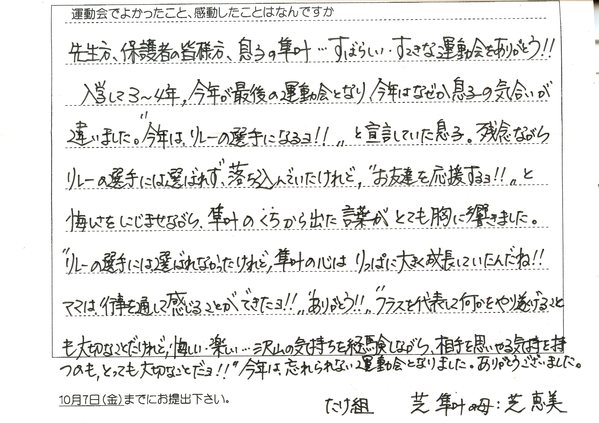 運動会でよかったこと、感動したことはなんですか
先生方、保護者の皆様方、息子の隼叶…すばらしい・すてきな運動会をありがとう!!
入学して3〜4年、今年が最後の運動会となり今年はなぜか息子の気合いが
違いました。"今年は、リレーの選手になるヨ!!〟と宣言していた息子。残念ながら
リレーの選手には選ばれず、落ち込んでいたけれど、"お友達を応援するヨ!!〟と
悔しさをにじませながら、隼叶のくちから出た言葉がとても胸に響きました。
"リレーの選手には選ばれなかったけれど、隼叶の心はりっぱに大きく成長していたんだね!!
ママは、行事を通して感じることができたヨ!!〟"ありがとう!!〟"クラスを代表して何かをやり遂げること
も大切なことだけれど、悔しい・楽しい…沢山の気持ちを経験しながら、相手を思いやる気持を持
つのも、とっても大切なことだヨ!!〟今年は忘れられない運動会となりました。ありがとうございました。
10月7日(金)までにお提出下さい。
たけ組 芝 隼叶の母:芝 恵美